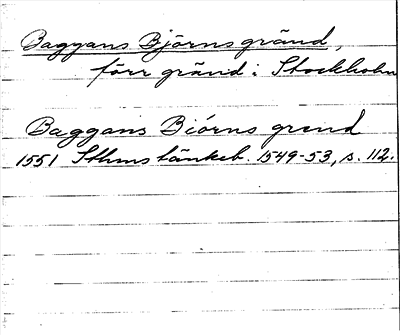 Baggans Björns gränd,
förr gränd i Stockholm
Baggans Biörns grend
1551 Sthms tänkeb. 1549-53, s. 112.